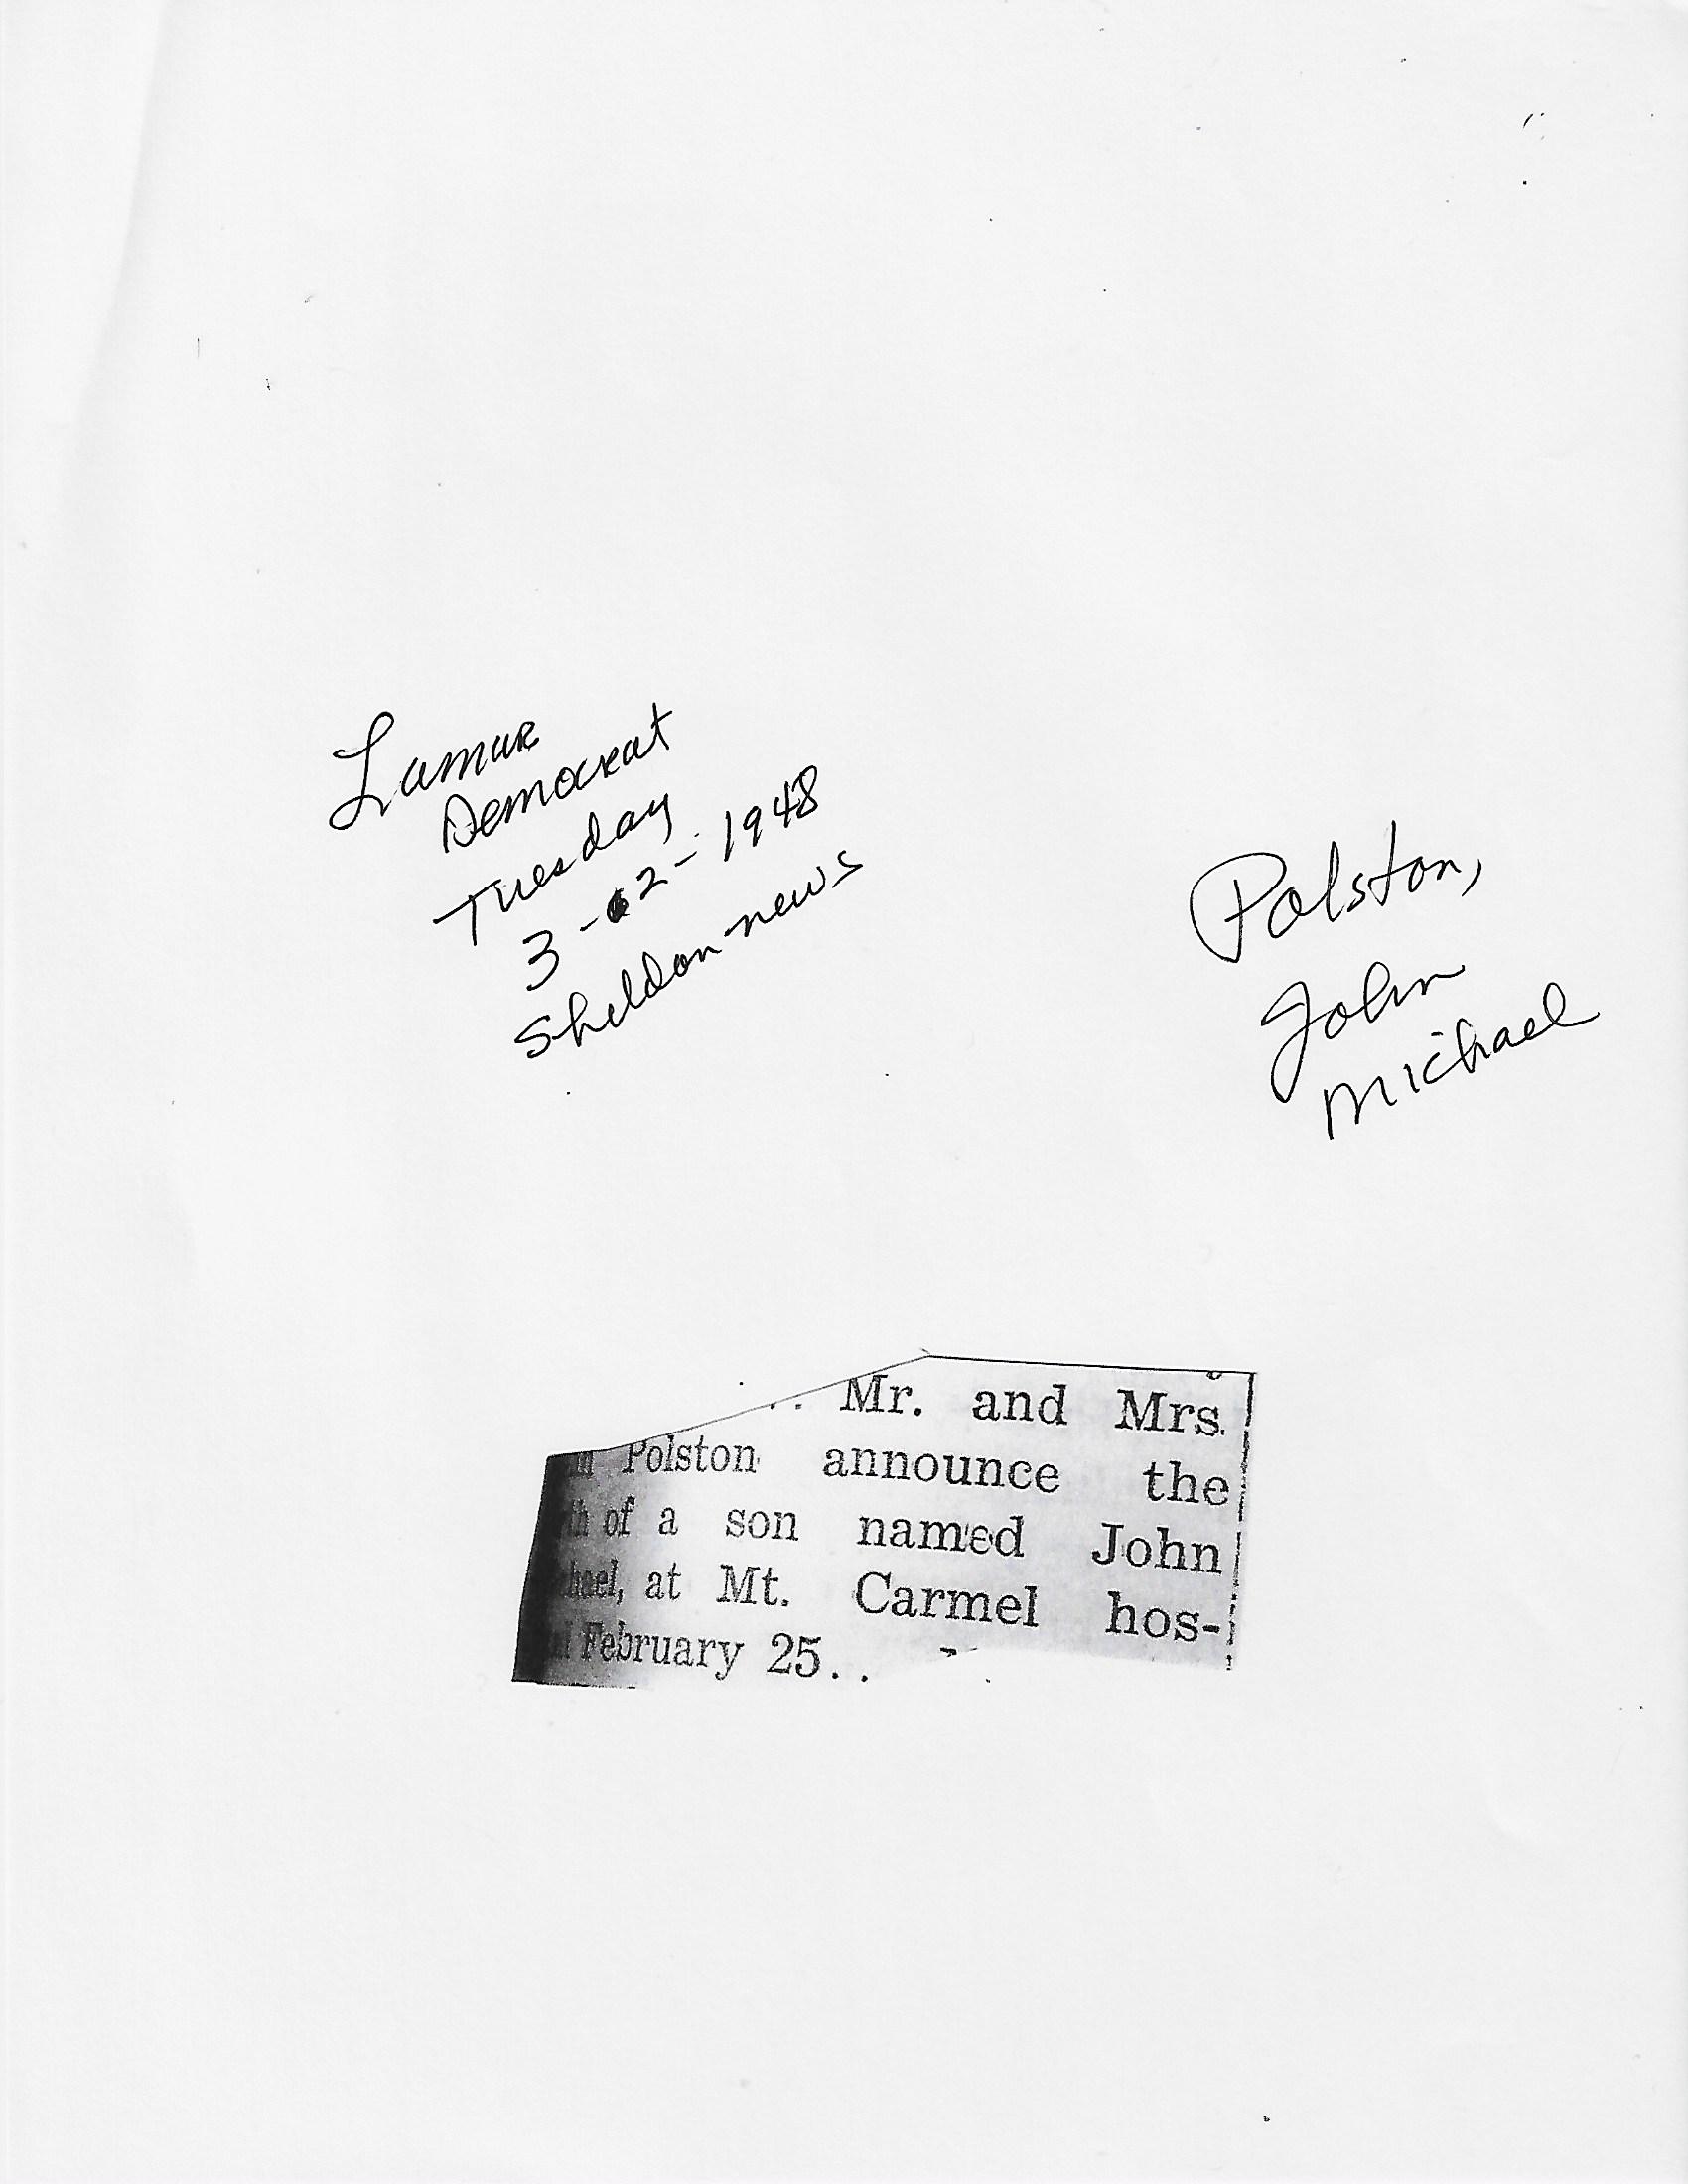 Lamar
Democrat
Tuesday
3-02-1948
Sheldon news
Polston,
John
Michael
.. Mr. and Mrs.
Polston announce the
of a son named John
at Mt. Carmel hos-
February 25..